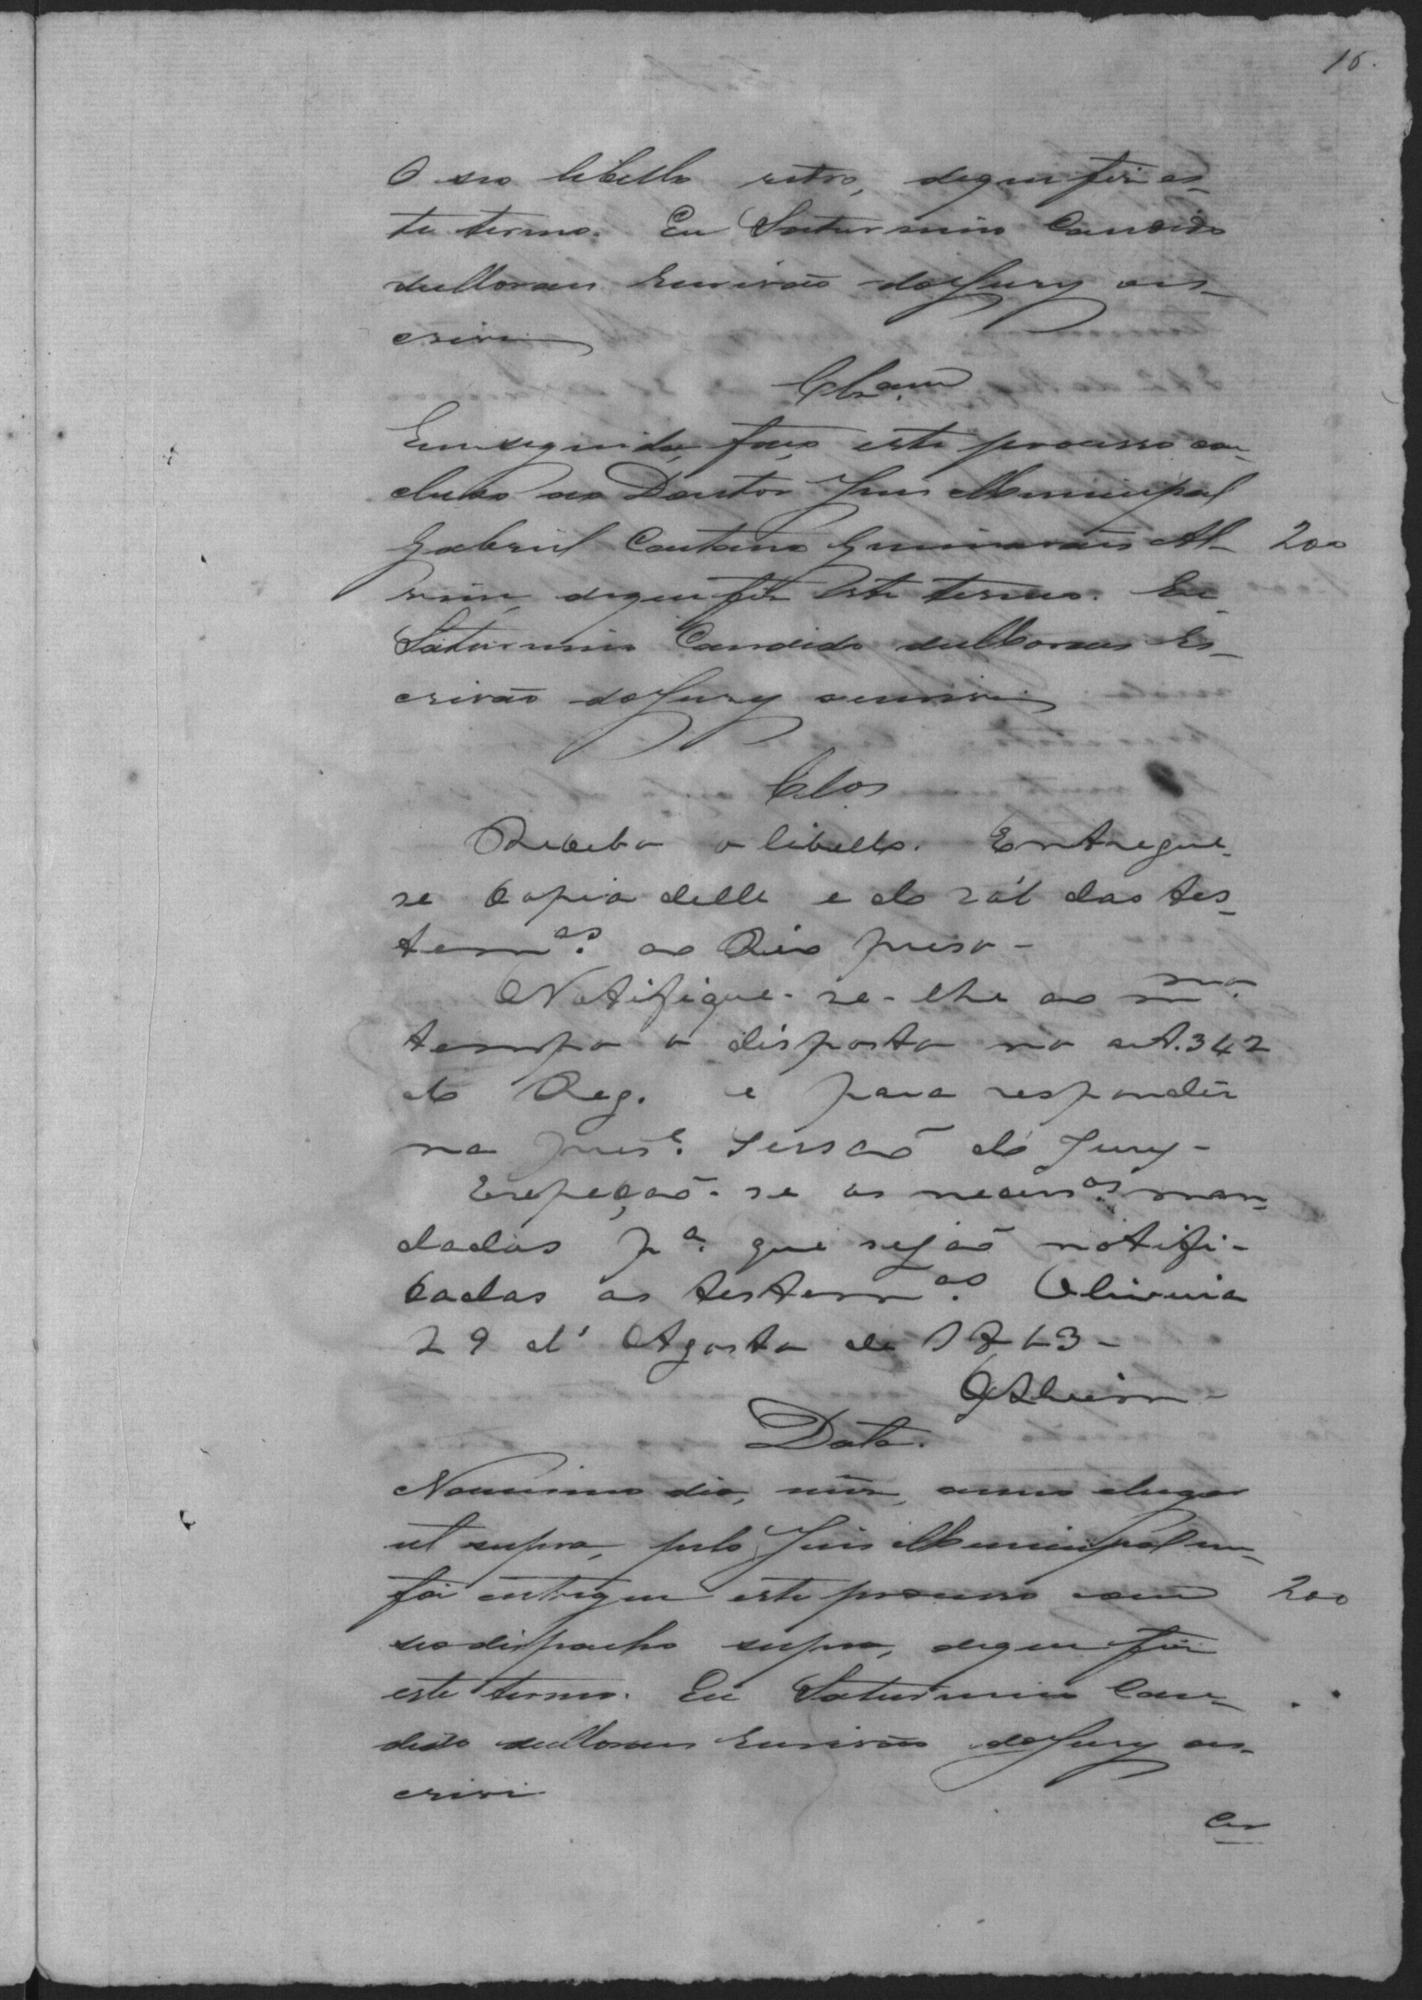 16.
O seo libello retro, de que fiz es-
te termo. Eu Saturnino Candido
de Moraes Escrivão do Jury o es-
crevi
Clz.am
Em seguida, faço este processo con-
cluso ao Doutor Juis Municipal
Gabriel Caetano Guimarães Al-
vim, de que fiz este termo. Eu
200
Saturnino Candido de Moraes Es-
crivão do Jury o escrevi
Clos
Recebo o libello. Entregue-
se copia delle e do ról das tes-
tem.as ao Réo preso -
Notifique-se-lhe ao m.mo
tempo o disposto no art. 342
do Reg. e para responder
na pres.e sessão do Jury -
Expeção-se os necess.os man-
dados p.a que sejão notifi-
cadas as testem.as Oliveira
29 d'Agosto de 1863 -
GAlvim -
Data.
No mesmo dia, mez, anno e lugar
ut supra, pelo Juis Municipal me
foi entregue este processo com
200
seo despacho supra, de que fiz
este termo. Eu Saturnino Can-
dido de Moraes Escrivão do Jury o es-
crevi
Cer